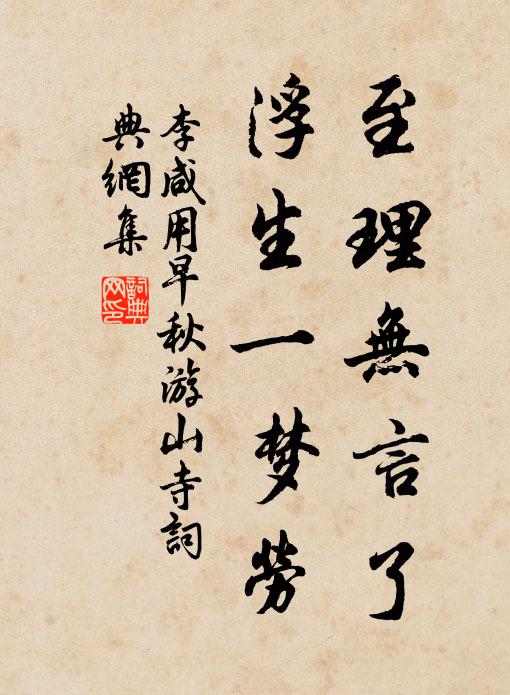 至理無言了
浮生一梦勞
李咸用早秋游山寺詞
典網集
詞典
网印